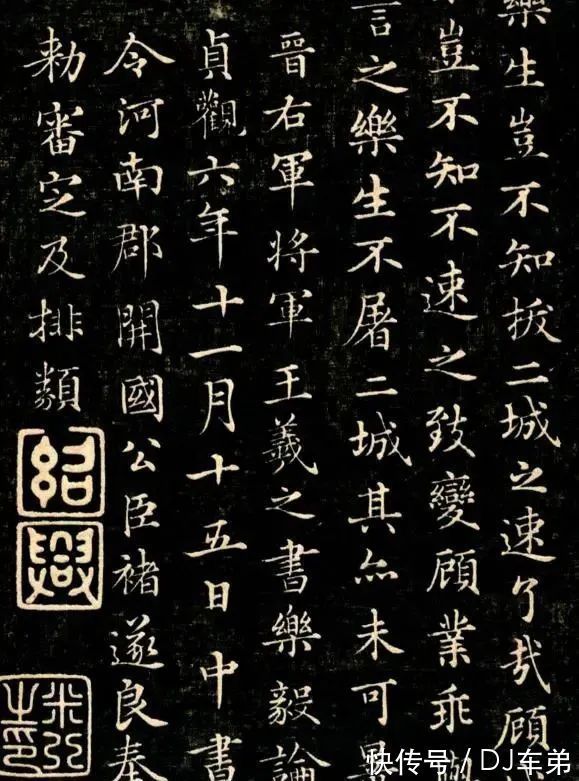 樂生豈不知拔二城之速了哉顧
豈不知不速之致變顧業乖
言之樂生不屠二城其亦未可
晉右軍將軍王羲之書樂毅論
貞觀六年十一月十五日中書
令河南郡開國公臣褚遂良奉
勑審定及排類
紹興
快传号/DJ车弟